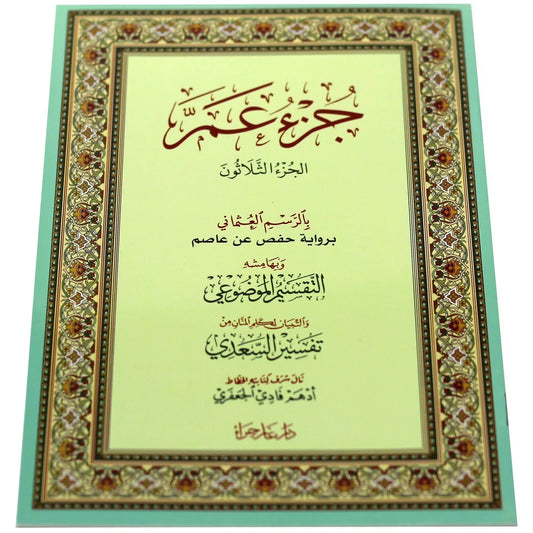 جُزْءُ عَمَّ
الجُزْءُ الثَّلَاثُونَ
بِالرَّسْمِ العُثْمَانِي
برواية حفص عن عاصم
وَبِهَامِشِهِ
التَّقْسِيْمُ المَوْضُوعِي
وَالتِّبْيَان لِكَلِمِ المَنَّانِ مِنْ
تَفْسِيْرِ السَّعْدِي
نَالَ شَرَفَ كِتَابَتِهِ الخَطَّاط
أَدْهَمْ فَادِي الجَعْفَرِي
دار غار حراء